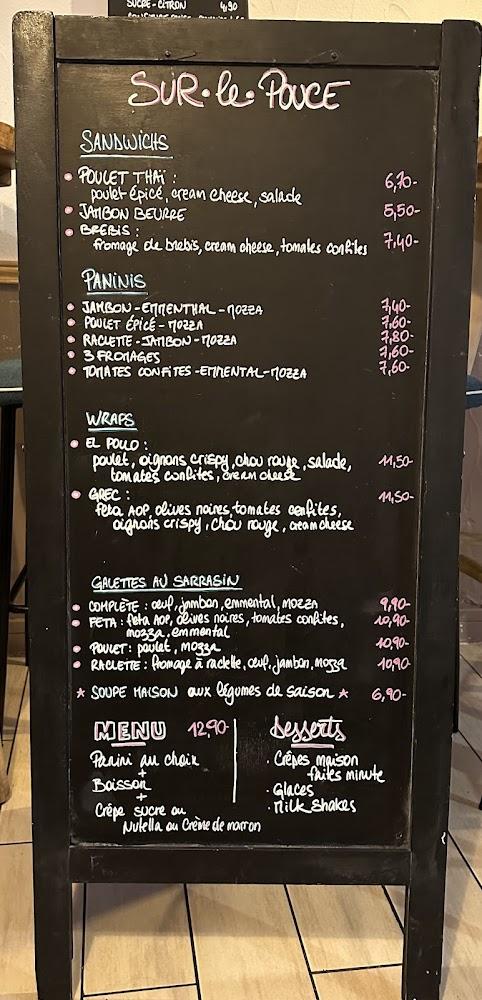 SUCRE - CITRON 4,90
SUR • le • POUCE
SANDWICHS
POULET THAÏ : 6,70-
poulet épicé, cream cheese, salade
JAMBON BEURRE 5,50-
BREBIS : 7,40-
fromage de brebis, cream cheese, tomates confites
PANINIS
JAMBON - EMMENTHAL - MOZZA 7,40-
POULET ÉPICÉ - MOZZA 7,60-
RACLETTE - JAMBON - MOZZA 7,80-
3 FROMAGES 7,60-
TOMATES CONFITES - EMMENTAL - MOZZA 7,60-
WRAPS
EL POLLO :
poulet, oignons crispy, chou rouge, salade, 11,50-
tomates confites, cream cheese
GREC : 11,50-
feta AOP, olives noires, tomates confites,
oignons crispy, chou rouge, cream cheese
GALETTES AU SARRASIN
COMPLÈTE : œuf, jambon, emmental, mozza 9,90-
FETA : feta AOP, olives noires, tomates confites, 10,90-
mozza, emmental
POULET : poulet, mozza 10,90-
RACLETTE : fromage à raclette, œuf, jambon, mozza 10,90-
* SOUPE MAISON aux légumes de saison * 6,90-
MENU 12,90-
Panini au choix
+
Boisson
+
Crêpe sucre ou
Nutella ou Crème de marron
Desserts
• Crêpes maison
faites minute
• Glaces
• Milk Shakes